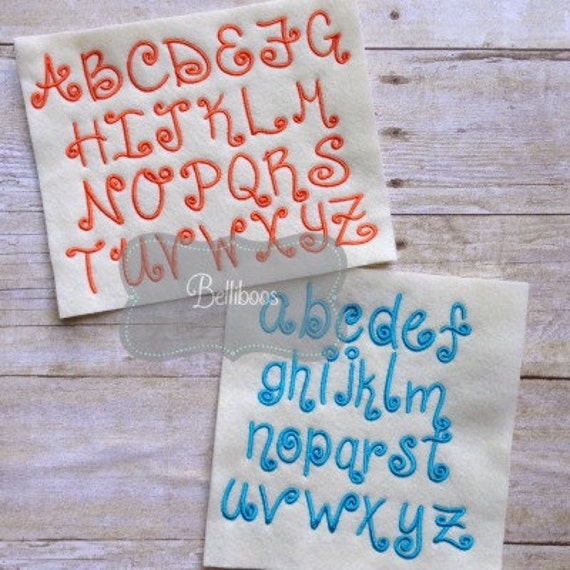 ABCDEFG
HIJKLM
NOPQRS
TUVWXYZ
Belliboos
abcdef
ghijklm
nopqrst
uvwxyz